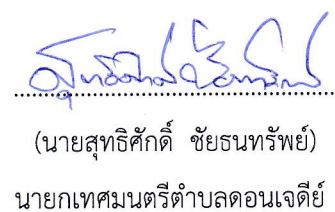 (นายสุทธิศักดิ์ ชัยธนทรัพย์)
นายกเทศมนตรีตำบลดอนเจดีย์